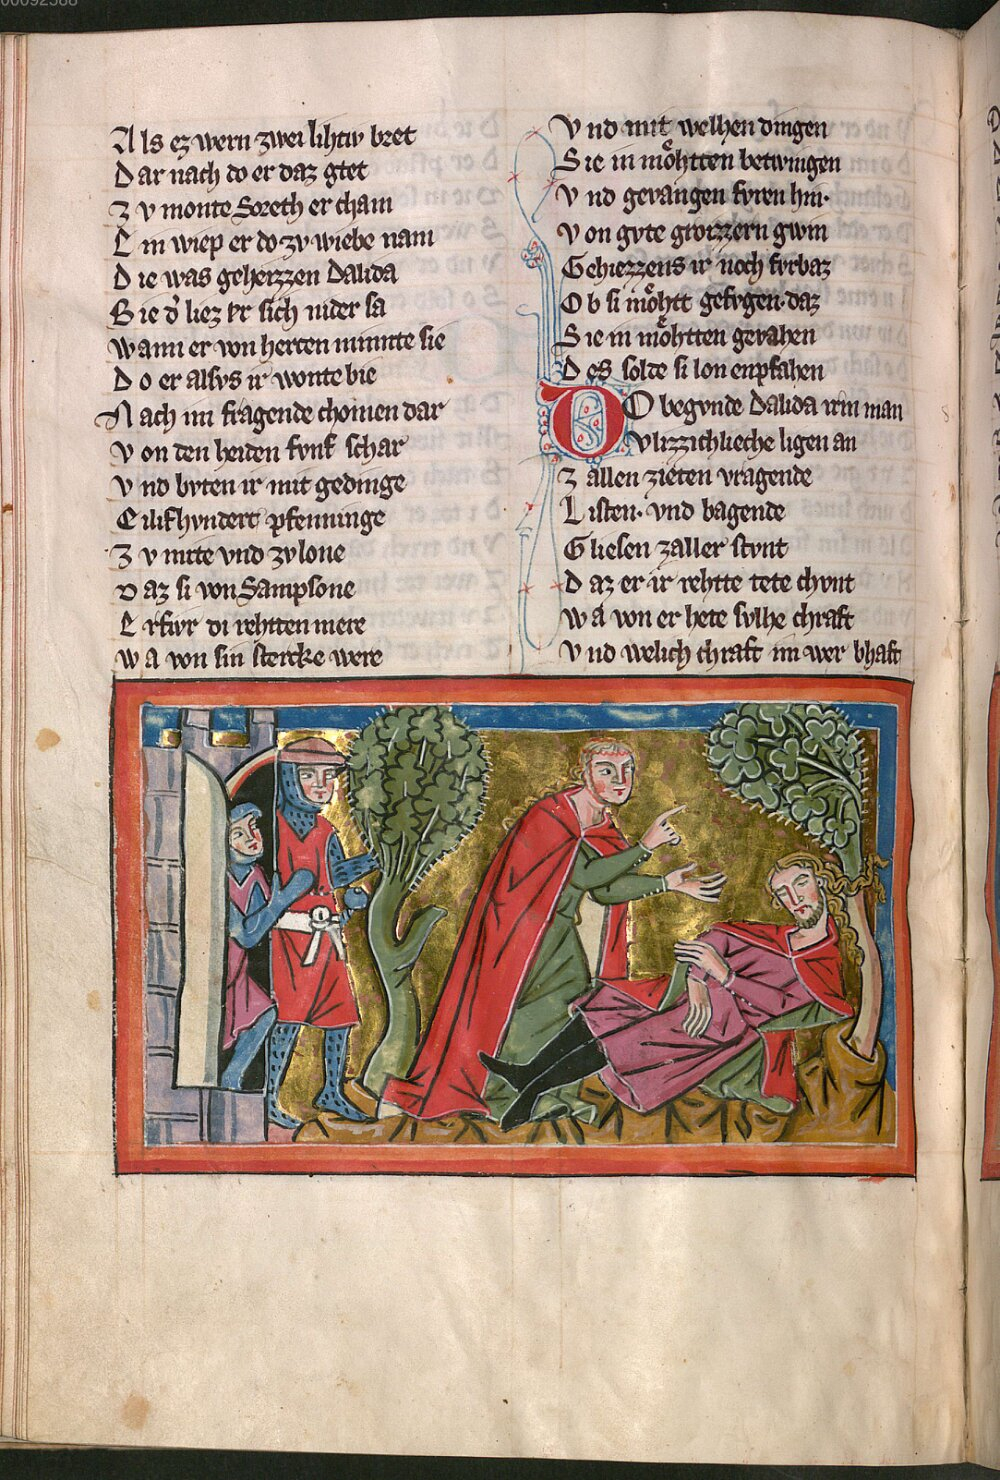 00092388
Als ez wern zwei lihtiv bret
Dar nach do er daz gtet
Zv monte Soreth er cham
Ein wiep er do zv wiebe nam
Die was geheizzen Dalida
Bie d' liez er sich nider sa
Wann er von herten minnte sie
Do er alsvs ir wonte bie
Nach im fragende chomen dar
Von den heiden fvnf schar
Vnd bvten ir mit gedinge
Eilifhvndert pfenninge
Zv mite vnd zvlone
Daz si von Sampsone
Erfvr di rehtten mere
Wa von sin stercke were
Vnd mit welhen dingen
Sie in mo͗htten betwingen
Vnd gevangen fvren hin.
Von gvte grozzern gwin
Gehiezzens ir noch fvrbaz
Ob si mo͗htt gefvgen. daz
Sie in mo͗htten gevahen
Des solde si lon enpfahen
DO begvnde Dalida irm man
Vlizzichlieche ligen an
Zallen zieten vragende
Listen. vnd bagende
Gliesen zaller stvnt
Daz er ir rehtte tete chvnt
Wa von er hete svlhe chraft
Vnd welich chraft im wer bhaft